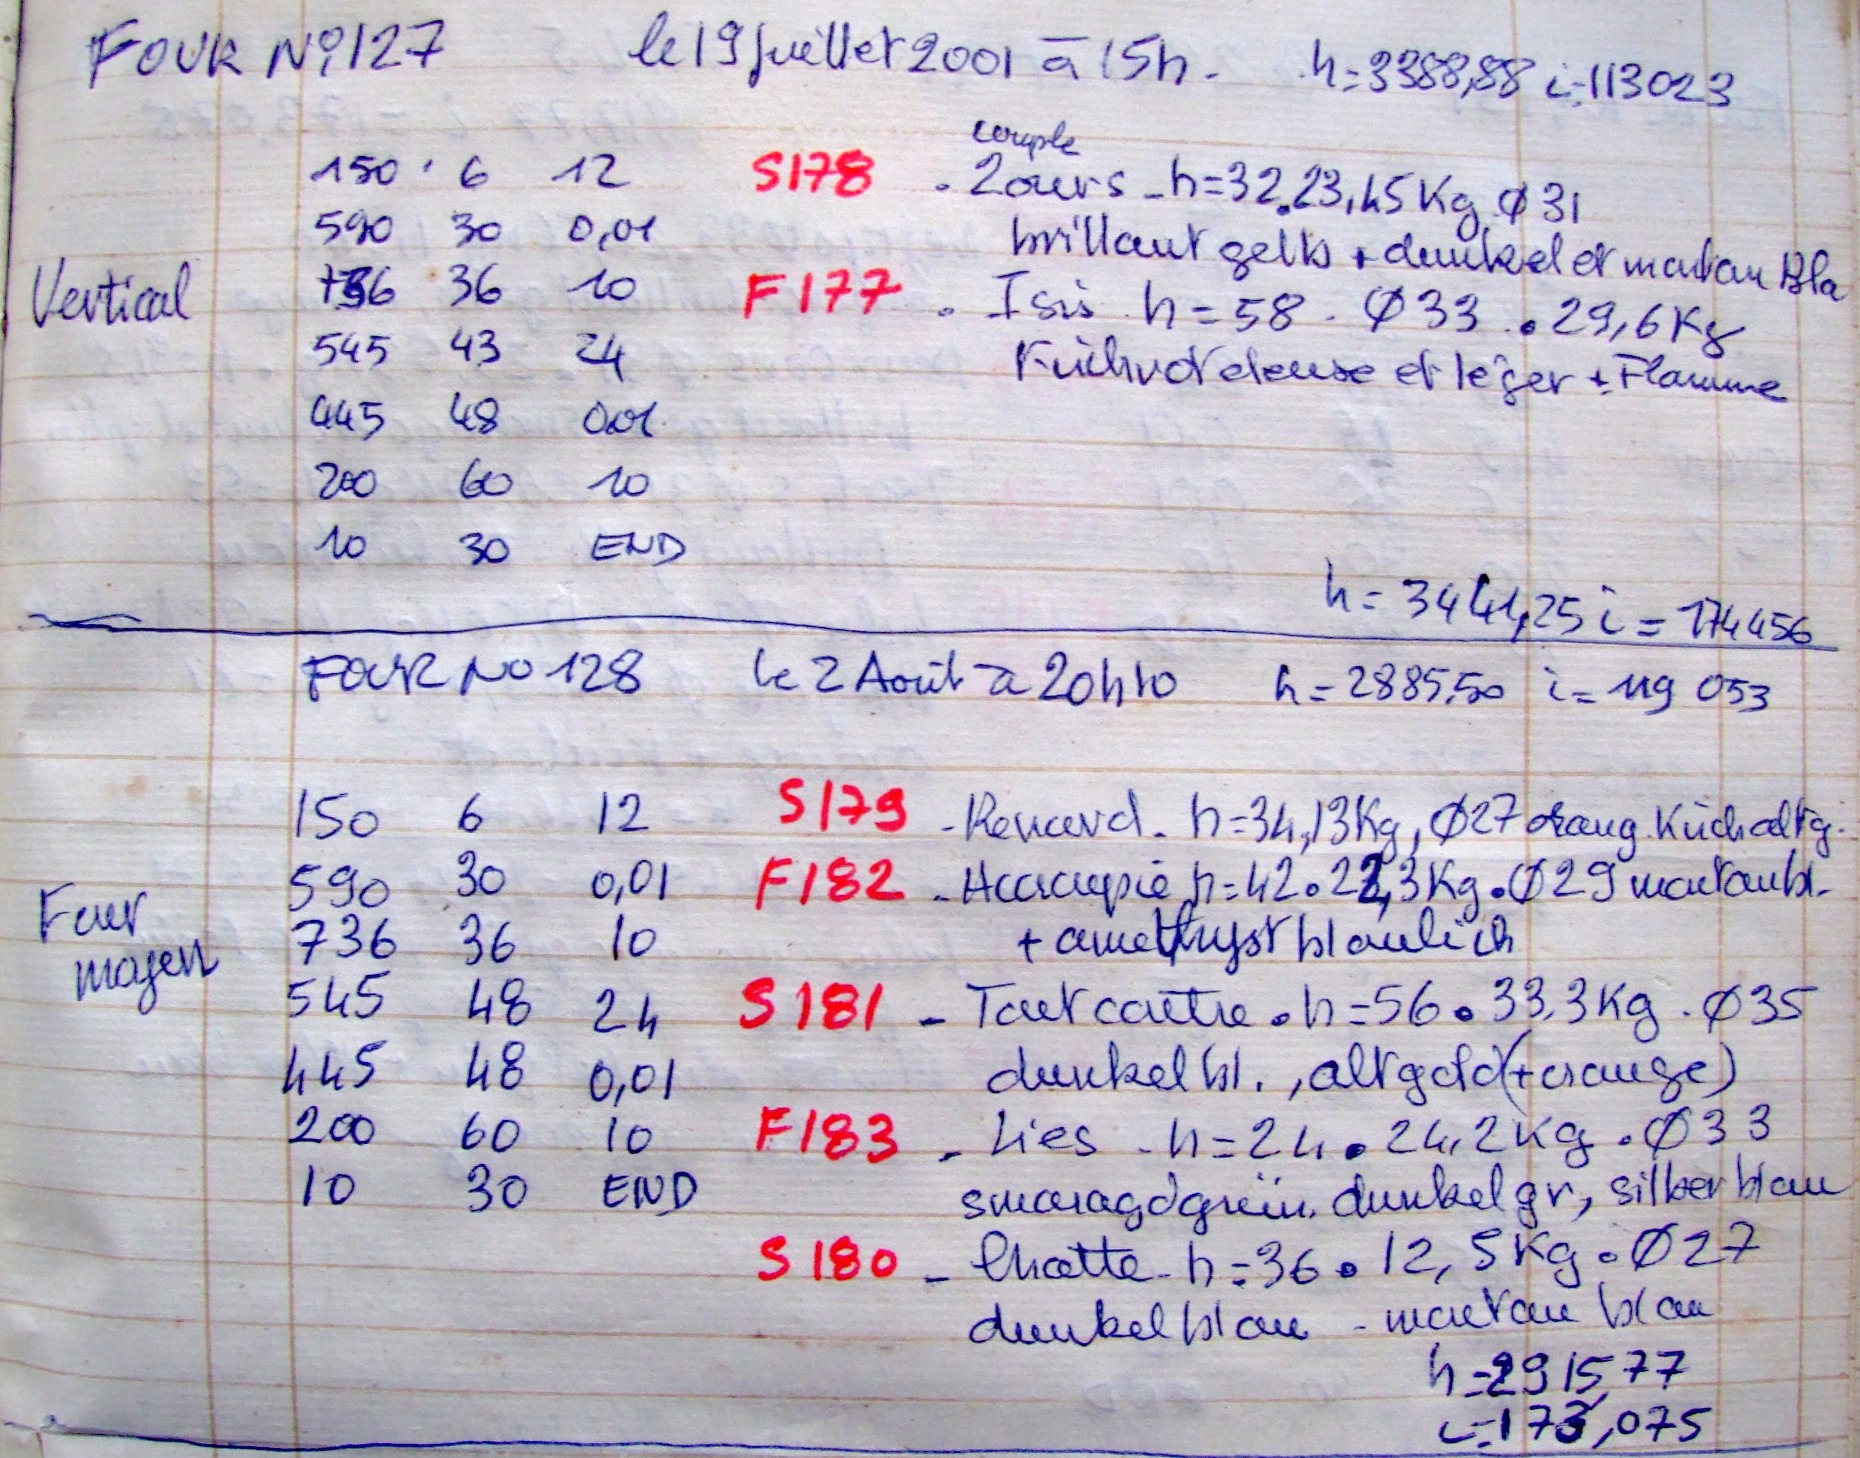 FOUR No 127 le 19 Juillet 2001 à 15h. h=3388,88 i=113023
couple
150 6 12 S178 . 2 ours - h=32.23,45Kg Ø31
590 30 0,01 brillant gelb + dunkel et montan Bla
Vertical 736 36 10 F177 . Isis h=58 . Ø33 . 29,6Kg
545 43 24 dense et léger + Flamme
445 48 0,01
200 60 10
10 30 END
h=3441,25 i=174456
FOUR No 128 le 2 Août à 20h10 h=2885,50 i=119 053
150 6 12 S179 - Renard. h=34,13Kg, Ø27 orang. Küch altg.
590 30 0,01 F182 - Accroupie h=42.22,3Kg.Ø29 montan bl.
Four moyen 736 36 10 + amethyst blaulich
545 48 24 S181 - Tout contre . h=56 . 33,3Kg . Ø35
445 48 0,01 dunkel bl., altgold (+orange)
200 60 10 F183 - Lies - h=24 . 24,2Kg . Ø33
10 30 END smaragdgrün, dunkel gr, silber blau
S180 - Chatte - h=36 . 12,5Kg . Ø27
dunkel blau - montan blau
h=2915,77
i=173,075